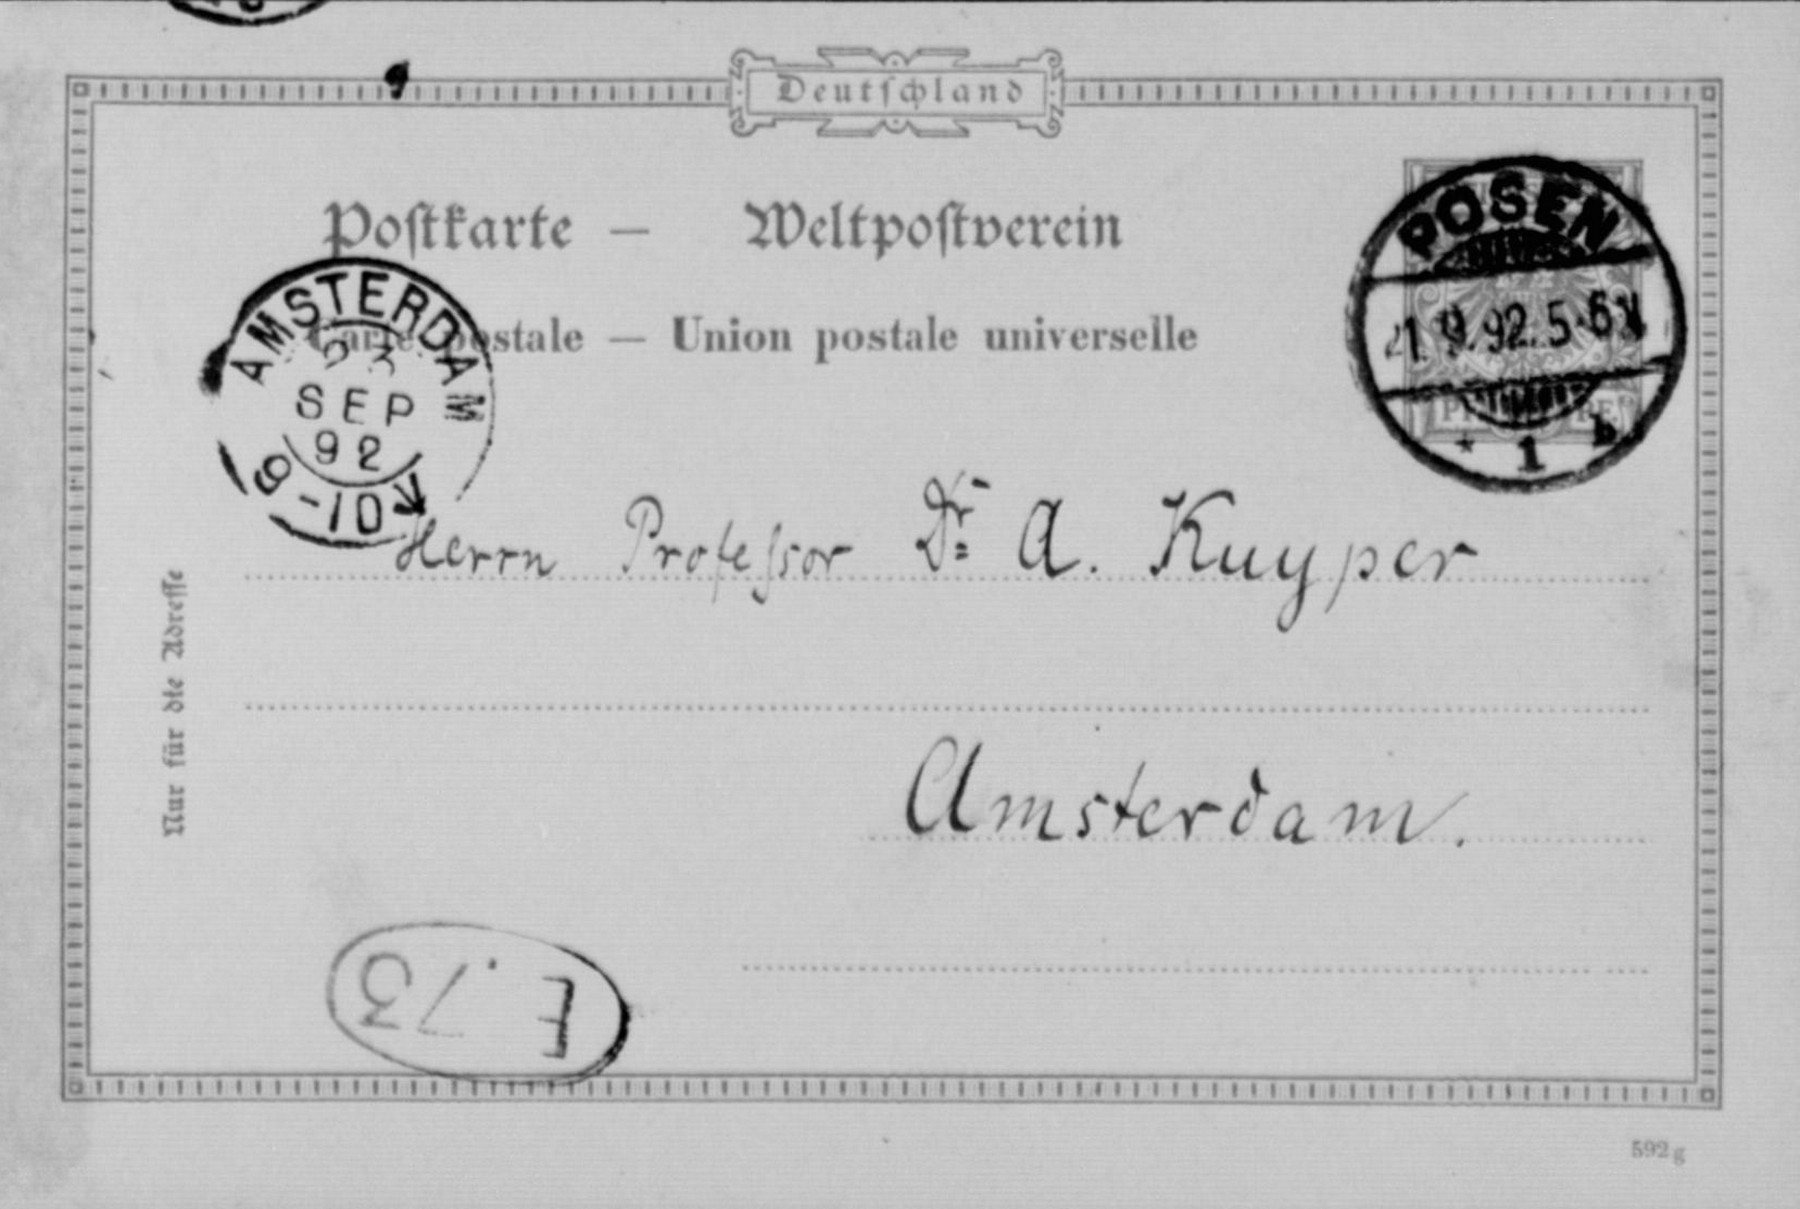 Deutschland
Postkarte — Weltpostverein
Carte postale — Union postale universelle
AMSTERDAM
23
SEP
92
9-10 V
POSEN
21.9.92.5-6N
* 1 b
Herrn Professor Dr. A. Kuyper
Amsterdam.
Nur für die Adresse
E. 73
592 g